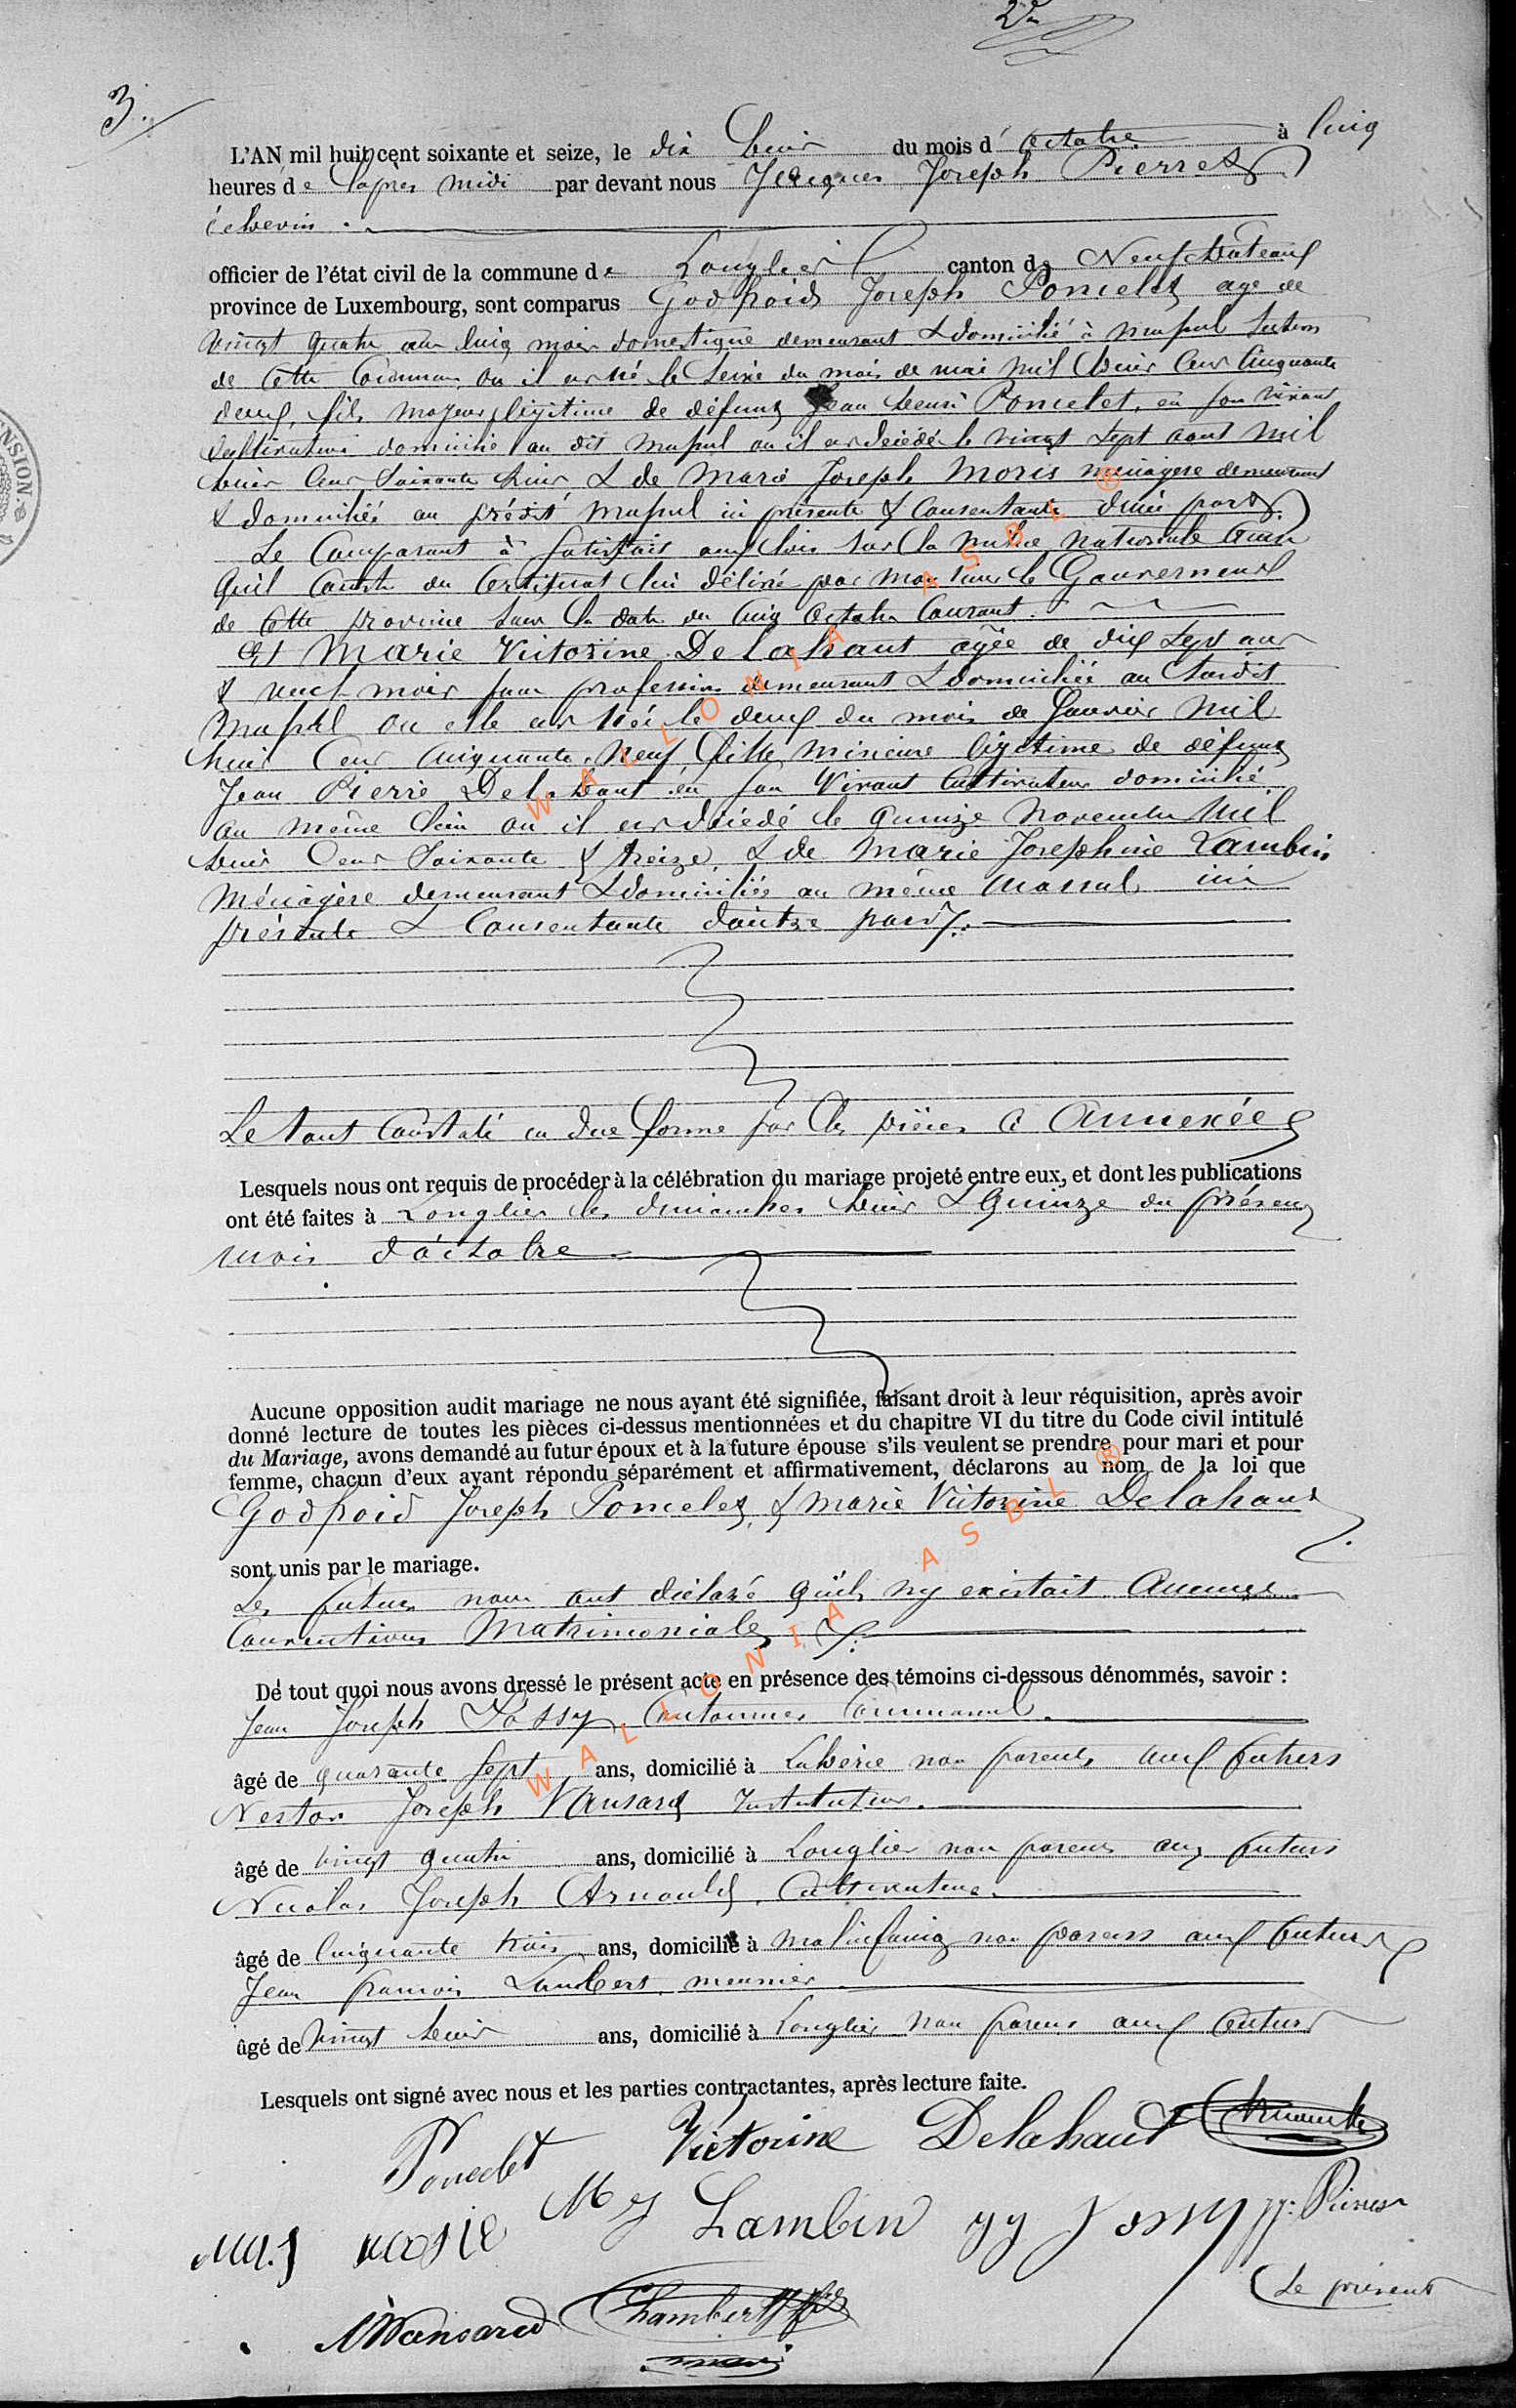 3.
L'AN mil huit cent soixante et seize, le dix huit du mois d'octobre à cinq
heures de l'après midi par devant nous Jacques Joseph Pierret
échevin.
officier de l'état civil de la commune de Longlier canton de Neufchâteau
province de Luxembourg, sont comparus Godfroid Joseph Poncelet agé de
vingt quatre ans cinq mois domestique demeurant & domicilié à Massul section
de cette commune, ou il est né le seize du mois de mai mil huit cent cinquante
deux, fils majeur légitime de défunt Jean Henri Poncelet, en son vivant
cultivateur domicilié au dit Massul ou il est décédé le vingt sept aout mil
huit cent soixante huit & de Marie Joseph Moris ménagère demeurant
& domiciliée au prédit Massul ici présente & consentante d'une part.
Le comparant à satisfait aux lois sur la milice nationale ainsi
qu'il conste du certificat lui délivré par Monsieur le Gouverneur
de cette province sous la date du cinq octobre courant.
Et Marie Victorine Delahaut agée de dix sept ans
& neuf mois sans profession demeurant & domiciliée au susdit
Massul ou elle est née le deux du mois de Janvier mil
huit cent cinquante neuf fille mineure légitime de défunt
Jean Pierre Delahaut en son vivant cultivateur domicilié
au même lieu ou il est décédé le quinze novembre mil
huit cent soixante & treize, & de Marie Josephine Lambin
ménagère demeurant & domiciliée au même Massul ici
présente & consentante d'autre part.
Le tout constaté en due forme par les pièces ci annexées
Lesquels nous ont requis de procéder à la célébration du mariage projeté entre eux, et dont les publications
ont été faites à Longlier les dimanches huit & quinze du présent
mois d'octobre
Aucune opposition audit mariage ne nous ayant été signifiée, faisant droit à leur réquisition, après avoir
donné lecture de toutes les pièces ci-dessus mentionnées et du chapitre VI du titre du Code civil intitulé
du Mariage, avons demandé au futur époux et à la future épouse s'ils veulent se prendre pour mari et pour
femme, chacun d'eux ayant répondu séparément et affirmativement, déclarons au nom de la loi que
Godfroid Joseph Poncelet & Marie Victorine Delahaut
sont unis par le mariage.
Les futurs nous ont déclaré qu'ils n'y existait aucunes
conventions matrimoniales
De tout quoi nous avons dressé le présent acte en présence des témoins ci-dessous dénommés, savoir :
Jean Joseph Jossy Cantonnier Communal.
âgé de quarante sept ans, domicilié à Lahérie non parents aux futurs
Nestor Joseph Wansard Instituteur.
âgé de vingt quatre ans, domicilié à Longlier non parent aux futurs
Nicolas Joseph Arnould, Cultivateur.
âgé de cinquante trois ans, domicilié à Molinfaing non parent aux futurs
Jean François Lambert meunier
âgé de vingt huit ans, domicilié à Longlier non parent aux futurs
Lesquels ont signé avec nous et les parties contractantes, après lecture faite.
Poncelet Victorine Delahaut Arnould
M J Lambin JJ Jossy JJ. Pierret
NJWansard Lambert
Le présent
WALLONIA ASBL ®
WALLONIA ASBL ®
NSION.